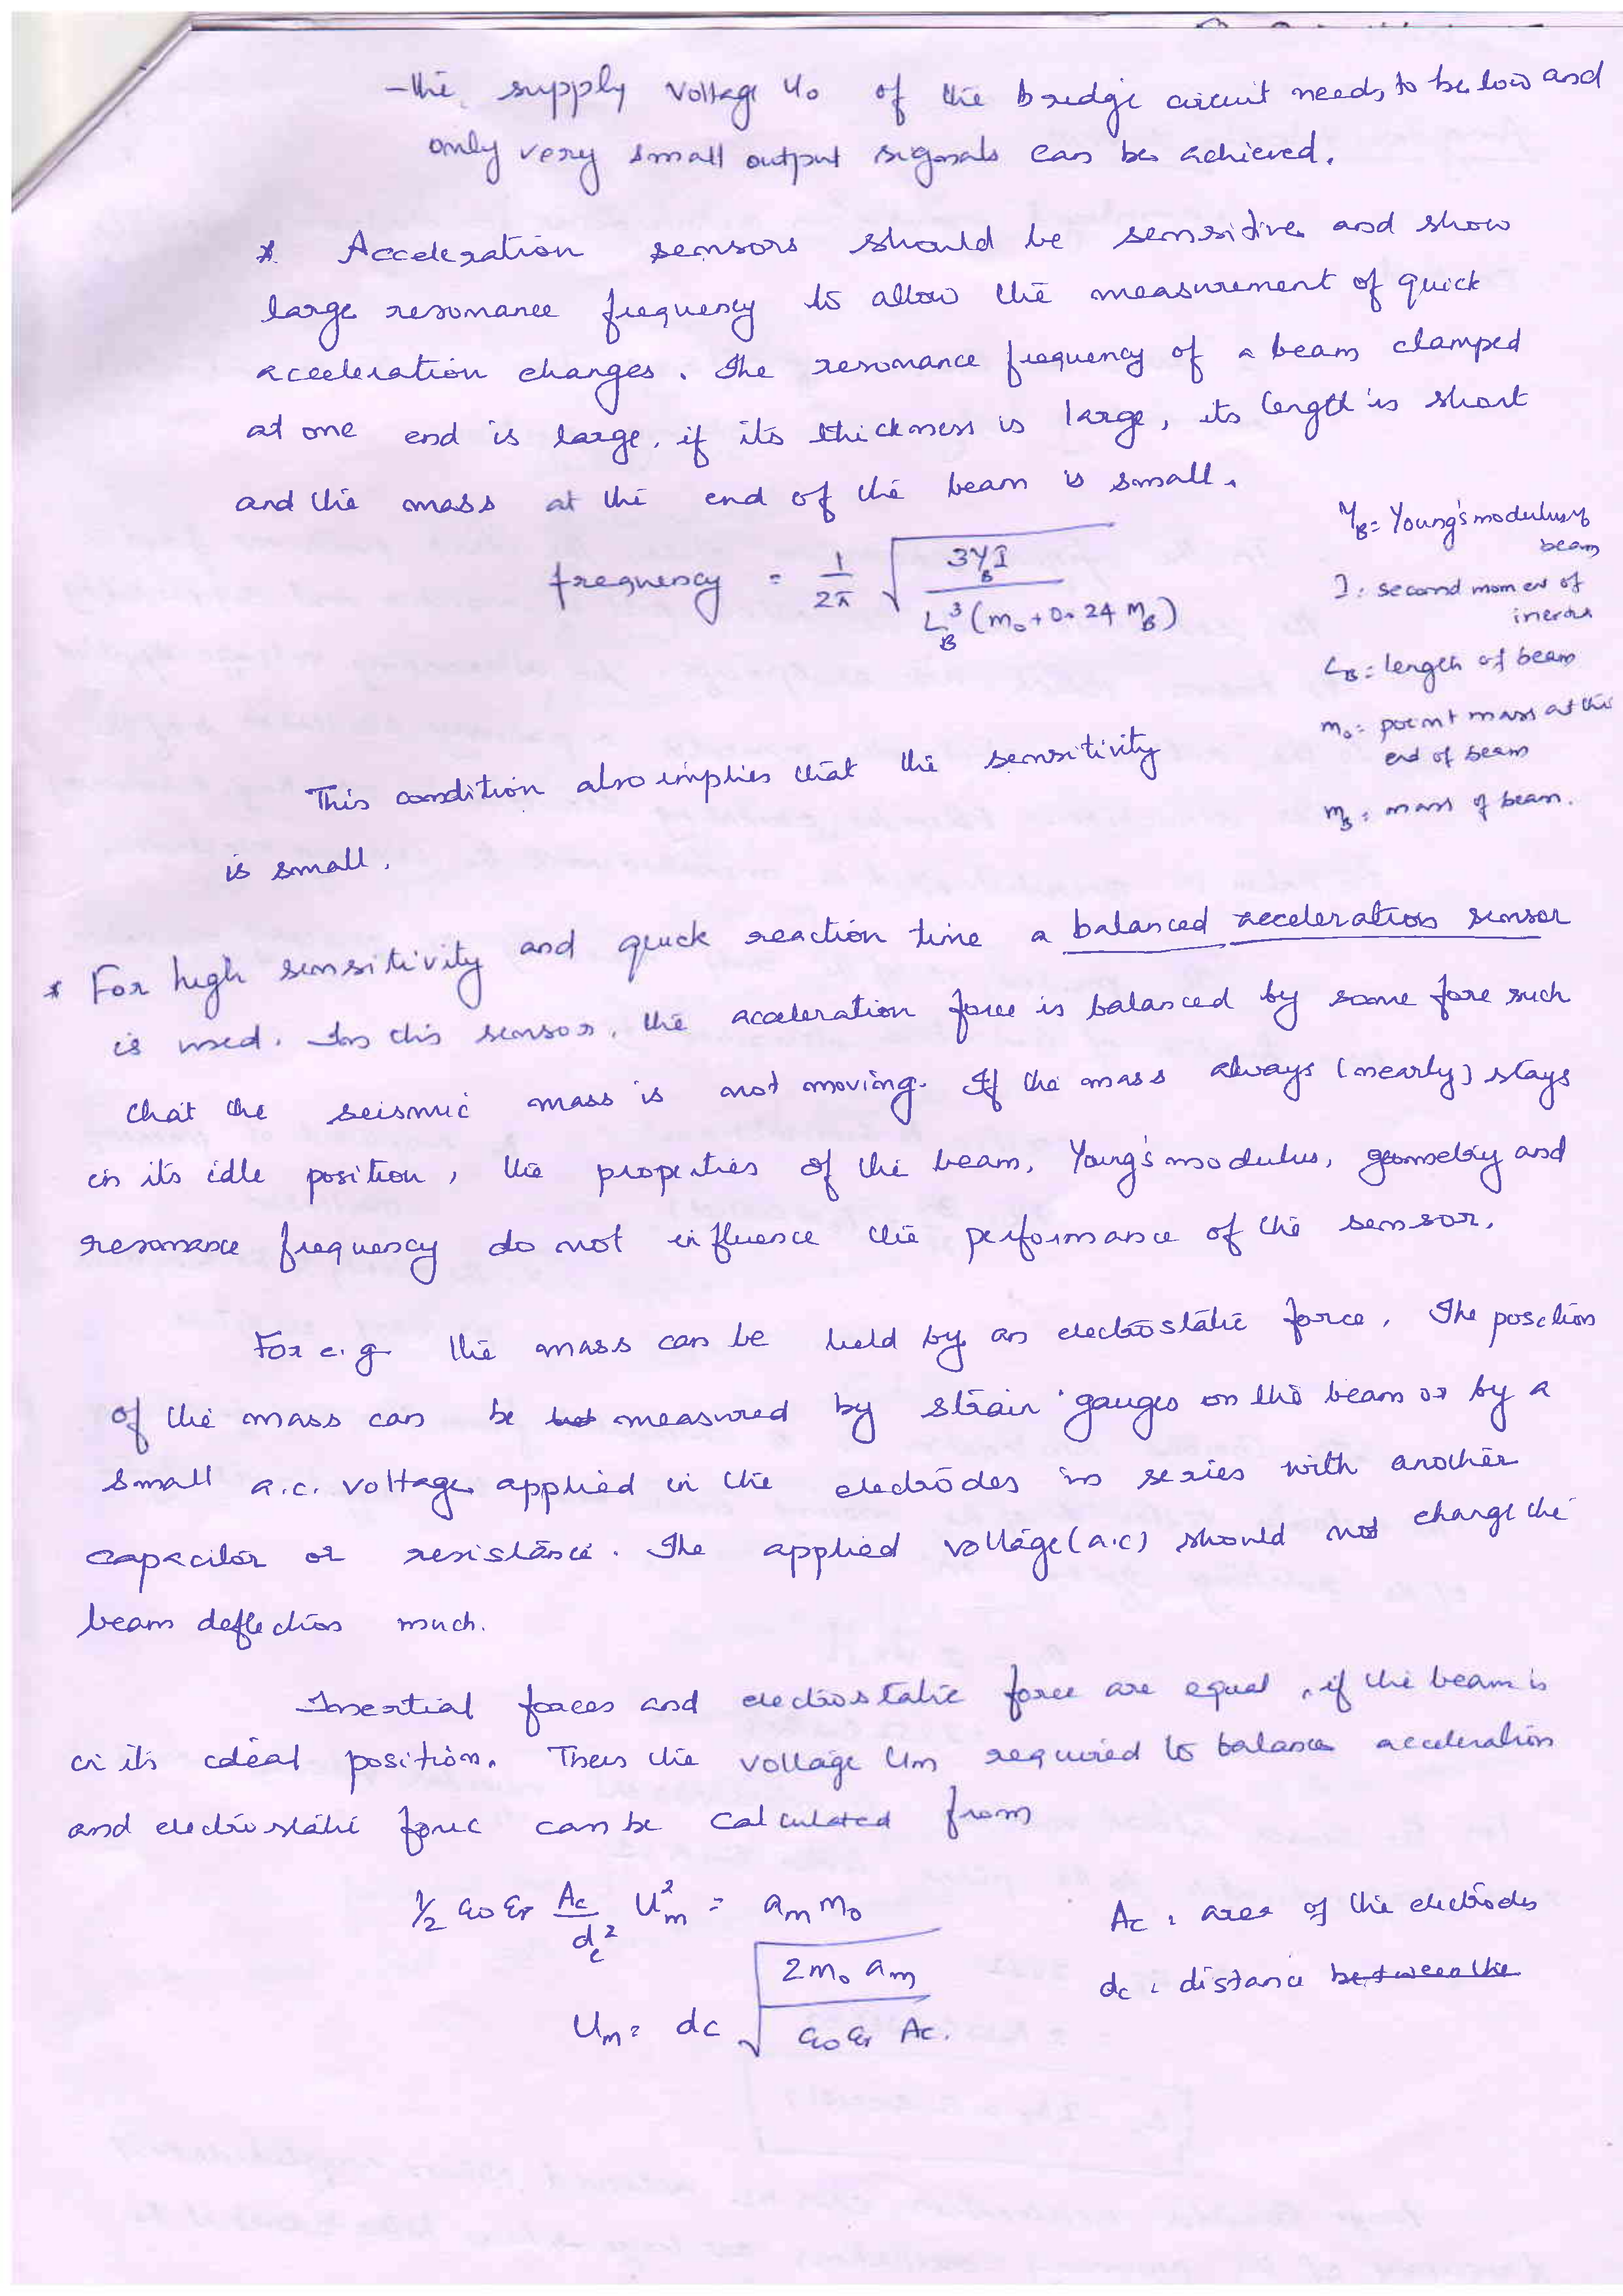 -the supply voltage U₀ of the bridge circuit needs to be low and
only very small output signals can be achieved.
* Acceleration sensors should be sensitive and show
large resonance frequency to allow the measurement of quick
acceleration changes. The resonance frequency of a beam clamped
at one end is large, if its thickness is large, its length is short
and the mass at the end of the beam is small.
frequency = 1/2π √(3Y_B I / L_B³ (m₀ + 0.24 m_B))
Y_B = Young's modulus of
beam
I : second moment of
inertia
L_B = length of beam
m₀ = point mass at the
end of beam
m_B = mass of beam.
This condition also implies that the sensitivity
is small.
* For high sensitivity and quick reaction time a balanced acceleration sensor
is used. In this sensor, the acceleration force is balanced by some fore such
that the seismic mass is not moving. If the mass always (nearly) stays
in its idle position, the properties of the beam, Young's modulus, geometry and
resonance frequency do not influence the performance of the sensor.
For e.g. the mass can be held by an electrostatic force. The position
of the mass can be measured by strain gauges on the beam or by a
small a.c. voltage applied in the electrodes in series with another
capacitor or resistance. The applied voltage (a.c) should not change the
beam deflection much.
Inertial forces and electrostatic force are equal, if the beam is
in its ideal position. Then the voltage Um required to balance acceleration
and electrostatic force can be calculated from
1/2 ε₀ εr Ac/dc² Um² = am m₀
Ac : area of the electrodes
dc : distance between the
Um = dc √(2m₀ am / ε₀ εr Ac.)